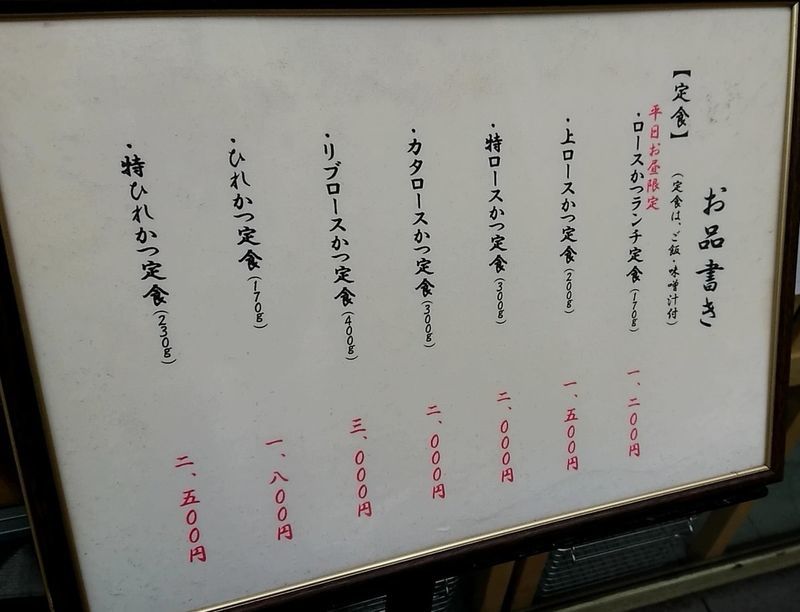 お品書き
【定食】（定食は、ご飯・味噌汁付）
平日お昼限定
・ロースかつランチ定食（170g） 一、二００円
・上ロースかつ定食（200g） 一、五００円
・特ロースかつ定食（300g） 二、０００円
・カタロースかつ定食（300g） 二、０００円
・リブロースかつ定食（400g） 三、０００円
・ひれかつ定食（170g） 一、八００円
・特ひれかつ定食（230g） 二、五００円